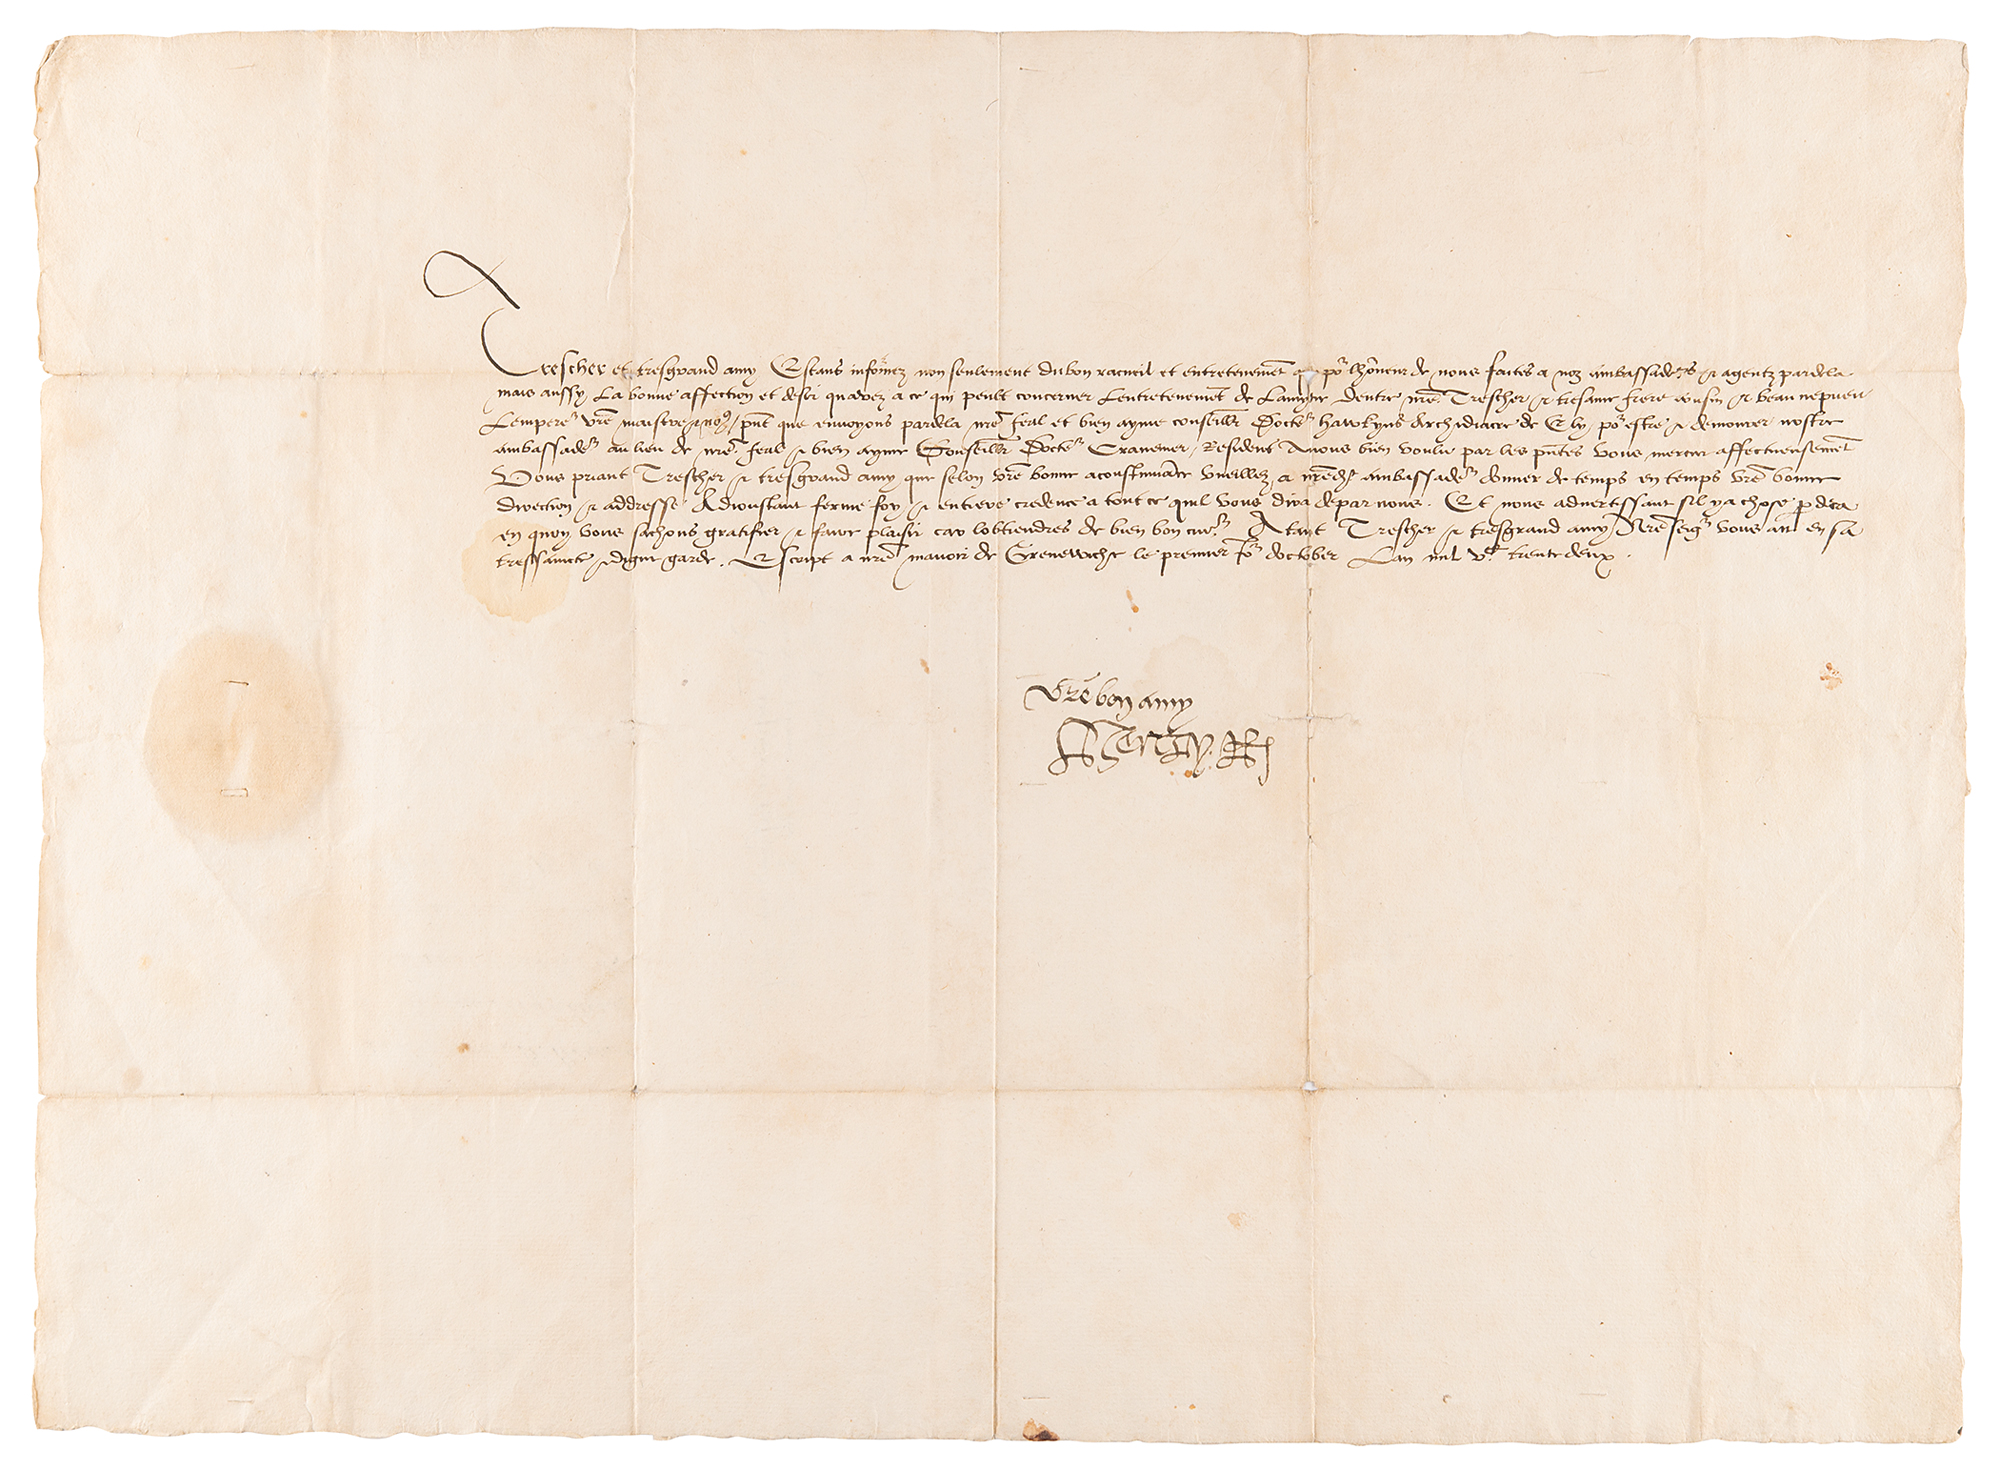 Trescher et tresgrand amy Estans informez non seulement du bon racueil et entretenemẽt que poʳ lhõneur de nous faites a noz ambassadeʳs et agentz pardela
mais aussy La bonne affection et desir quavez a ce qui peult concerner Lentretenemẽt de Lamytie Dentre nr̃e Trescher et tresame frere cousin et beau nepueu
Lempereʳ vr̃e maistre et nous / pñt que envoyons pardela nr̃e feal et bien ayme conseillr̃ Docteʳ hawkyns Archidiacre de Ely poʳ estre et demourer nostre
ambassadeʳ au lieu de nr̃e feal et bien ayme Conseillr̃ Docteʳ Cranemer, Resident Avons bien voulu par les pñtes vous mercier affectueusemẽt
Vous priant Trescher et tresgrand amy que selon vr̃e bonne acoustumãce vueillez a nr̃ed ambassadeʳ donner de temps en temps vr̃e bonne
direction et addresse Adioustant ferme foy et entiere credence a tout ce quil vous dira depar nous. Et nous advertissant sil y a chose p deca
en quoy vous sachons gratifier et faire plaisir car lobtiendres de bien bon cueʳ. Atant Trescher et tresgrand amy Nr̃e seigʳ vous ait en sa
tressaincte et digne garde. Escript a nr̃e manoir de Grenewiche le premier Joʳ doctober Lan mil vᶜ trente deux.
Vr̃e bon amy
Henry R